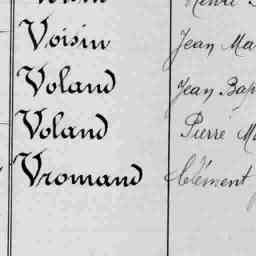 Voisin Jean
Voland Jean
Voland Pierre
Vromand Clément